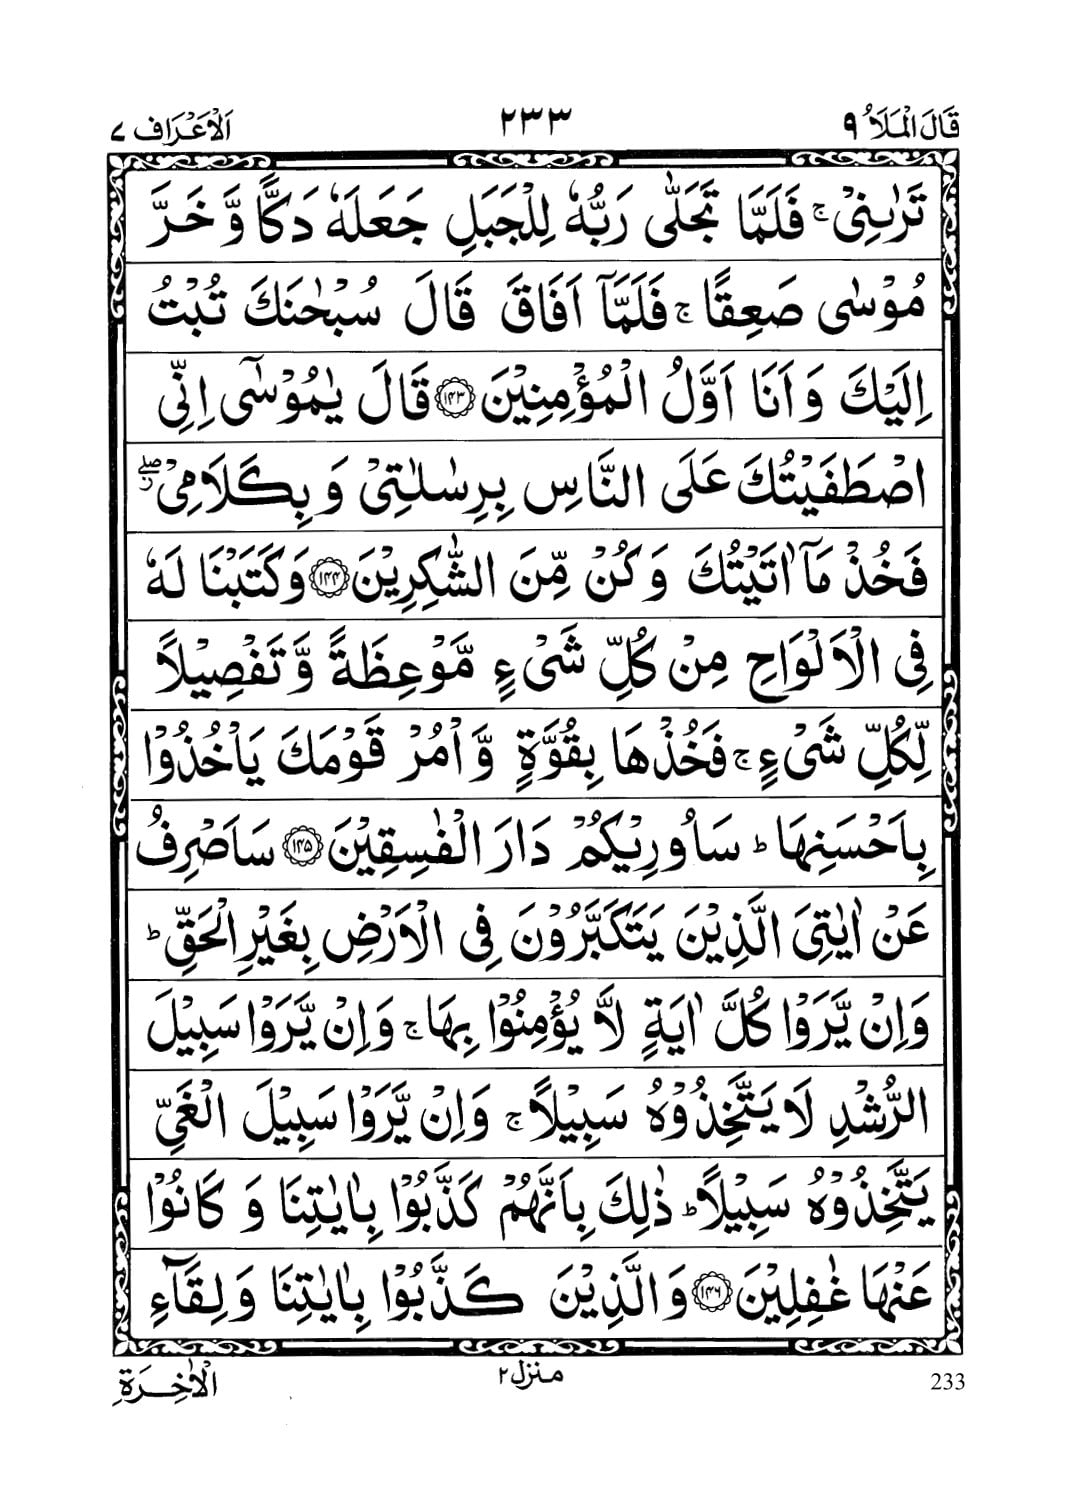 قَالَ الْمَلَاُ ٩
٢٣٣
اَلْاَعْرَاف ٧
تَرٰىنِیْ ۚ فَلَمَّا تَجَلّٰی رَبُّهٗ لِلْجَبَلِ جَعَلَهٗ دَكًّا وَّ خَرَّ
مُوْسٰی صَعِقًا ۚ فَلَمَّاۤ اَفَاقَ قَالَ سُبْحٰنَكَ تُبْتُ
اِلَیْكَ وَ اَنَا اَوَّلُ الْمُؤْمِنِیْنَ ﴿۱۴۳﴾ قَالَ یٰمُوْسٰۤی اِنِّی
اصْطَفَیْتُكَ عَلَی النَّاسِ بِرِسٰلٰتِیْ وَ بِكَلَامِیْ ۖ
فَخُذْ مَاۤ اٰتَیْتُكَ وَ كُنْ مِّنَ الشّٰكِرِیْنَ ﴿۱۴۴﴾ وَ كَتَبْنَا لَهٗ
فِی الْاَلْوَاحِ مِنْ كُلِّ شَیْءٍ مَّوْعِظَةً وَّ تَفْصِیْلًا
لِّكُلِّ شَیْءٍ ۚ فَخُذْهَا بِقُوَّةٍ وَّ اْمُرْ قَوْمَكَ یَاْخُذُوْا
بِاَحْسَنِهَا ؕ سَاُورِیْكُمْ دَارَ الْفٰسِقِیْنَ ﴿۱۴۵﴾ سَاَصْرِفُ
عَنْ اٰیٰتِیَ الَّذِیْنَ یَتَكَبَّرُوْنَ فِی الْاَرْضِ بِغَیْرِ الْحَقِّ ؕ
وَ اِنْ یَّرَوْا كُلَّ اٰیَةٍ لَّا یُؤْمِنُوْا بِهَا ۚ وَ اِنْ یَّرَوْا سَبِیْلَ
الرُّشْدِ لَا یَتَّخِذُوْهُ سَبِیْلًا ۚ وَ اِنْ یَّرَوْا سَبِیْلَ الْغَیِّ
یَتَّخِذُوْهُ سَبِیْلًا ؕ ذٰلِكَ بِاَنَّهُمْ كَذَّبُوْا بِاٰیٰتِنَا وَ كَانُوْا
عَنْهَا غٰفِلِیْنَ ﴿۱۴۶﴾ وَ الَّذِیْنَ كَذَّبُوْا بِاٰیٰتِنَا وَ لِقَآءِ
233
منزل ٢
الْاٰخِرَةِ